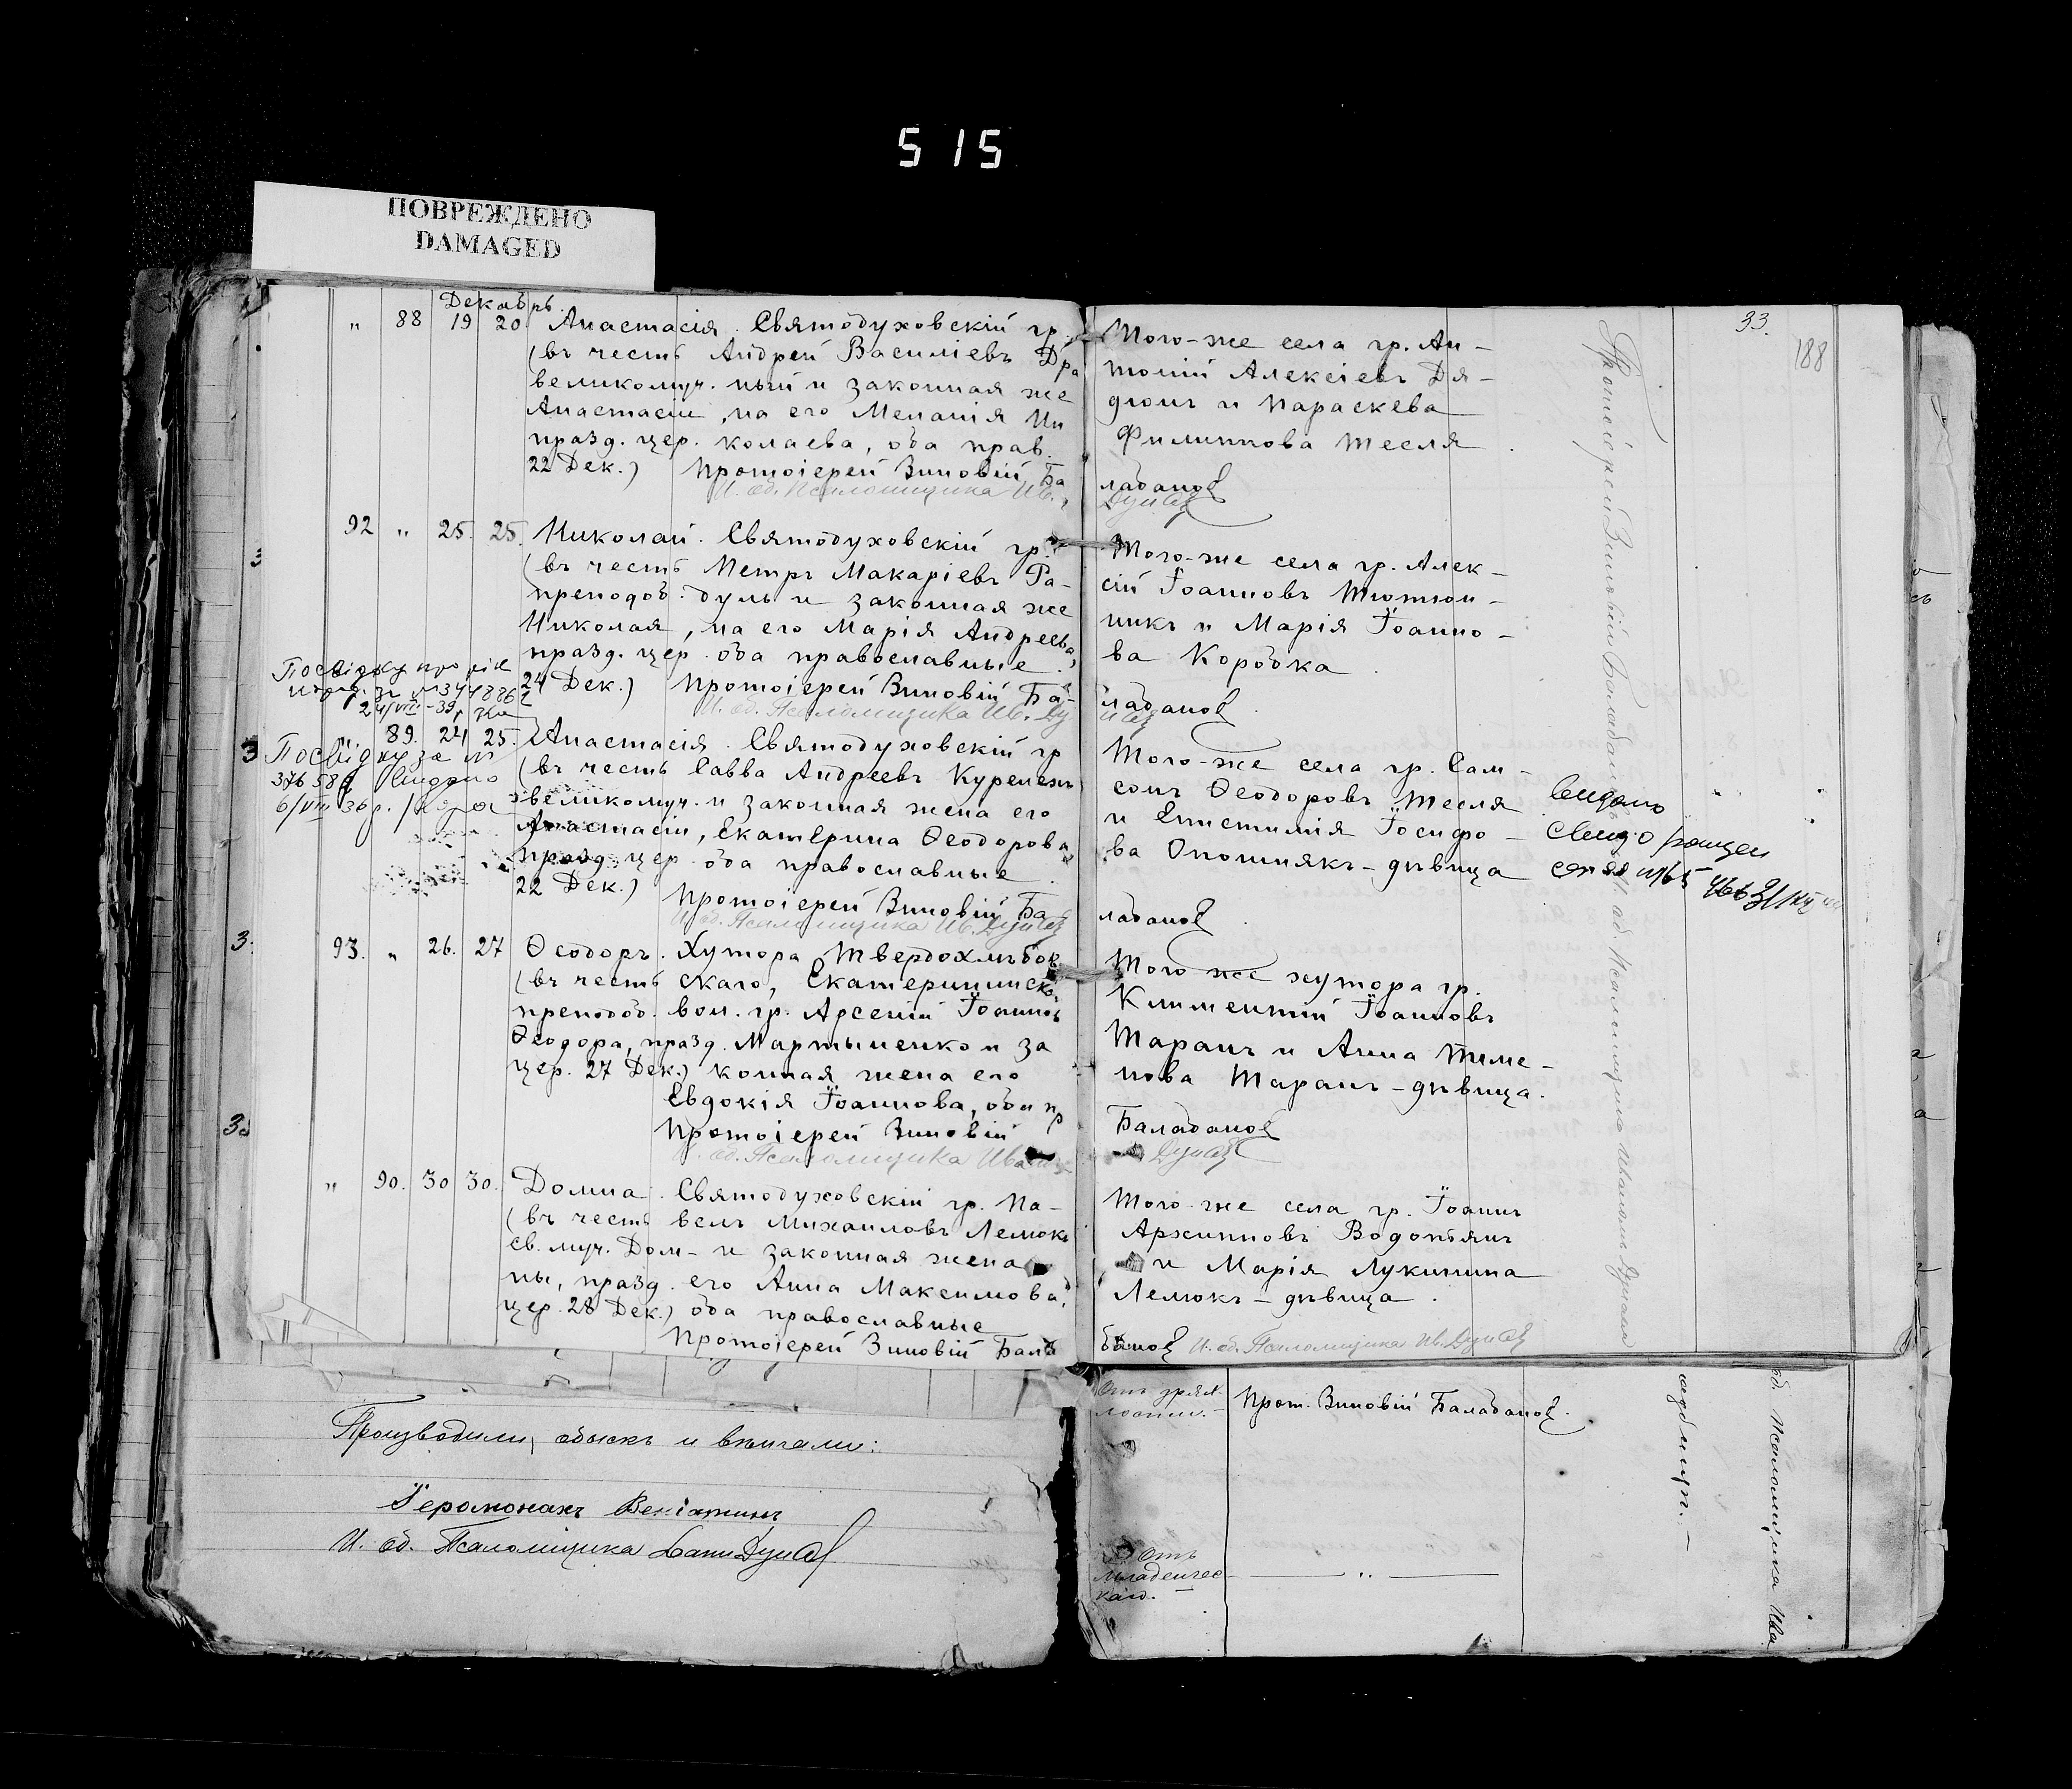 515
ПОВРЕЖДЕНО
DAMAGED
Декабрь
" 88 19 20 Анастасія. Святодуховскій гр.
(въ честь Андрей Василіевъ Дра
великомуч. ный и законная же
Анастасіи, на его Меланія Ни
празд. цер. колаева, оба прав.
22 Дек.) Протоіерей Зиновій Ба
И. об. Псаломщика Ив.
92 " 25. 25. Николай. Святодуховскій гр.
(въ честь Петръ Макаріевъ Ра-
преподоб. дуль и законная же
Николая, на его Марія Андреева,
празд. цер. оба православные.
24 Дек.) Протоіерей Зиновій Ба-
И. об. Псаломщика Ив. Ду
Посвідку про
24/VIII-39р.
89. 24 25. Анастасія. Святодуховскій гр
(въ честь Савва Андреевъ Курепенъ
великомуч. и законная жена его
Анастасіи, Екатерина Ѳеодорова
празд. цер. оба православные.
22 Дек.) Протоіерей Зиновій Ба-
И. об. Псаломщика Ив.
Посвідку за №
376588 видано
6/VIII 36р.
93. " 26. 27 Ѳеодоръ. Хутора Твердохлѣбов
(въ честь скаго, Екатерининско
преподоб. вол. гр. Арсеній Іоанновъ
Ѳеодора, празд. Мартыненко и за
цер. 27 Дек.) конная жена его
Евдокія Іоаннова, оба пр
Протоіерей Зиновій
И. об. Псаломщика Иванъ
" 90. 30 30. Домна. Святодуховскій гр. Па-
(въ честь велъ Михаиловъ Лемюкъ
св. муч. Дом- и законная жена
ны, празд. его Анна Максимова,
цер. 28 Дек.) оба православные
Протоіерей Зиновій Бала
Производили обыскъ и вѣнчали:
Іеромонахъ Веніаминъ
И. об. Псаломщика
33.
188
Того-же села гр. Ан-
тоній Алексіевъ Дя-
дюнъ и Параскева
Филиппова Тесля.
ладанов
Того-же села гр. Алек-
сій Іоанновъ Тютюн-
никъ и Марія Іоанно-
ва Коробка.
ладанов.
Того-же села гр. Сам-
сонъ Ѳеодоровъ Тесля
и Епистимія Іосифо-
ва Опошнякъ-дѣвица
ладанов.
Видано
Того же хутора гр.
Климентій Іоанновъ
Таранъ и Анна Тиме-
нова Таранъ-дѣвица.
Баладанов
Того же села гр. Іоаннъ
Архипповъ Водопьянъ
и Марія Лукинина
Лемюкъ-дѣвица.
банов И. об. Псаломщика Ив.
Протоіерей Зиновій Баладановъ
об. Псаломщика Иванъ
Прот. Зиновій Баладанов.
Отъ
младенчес-
каго.
об. Псаломщика Ива